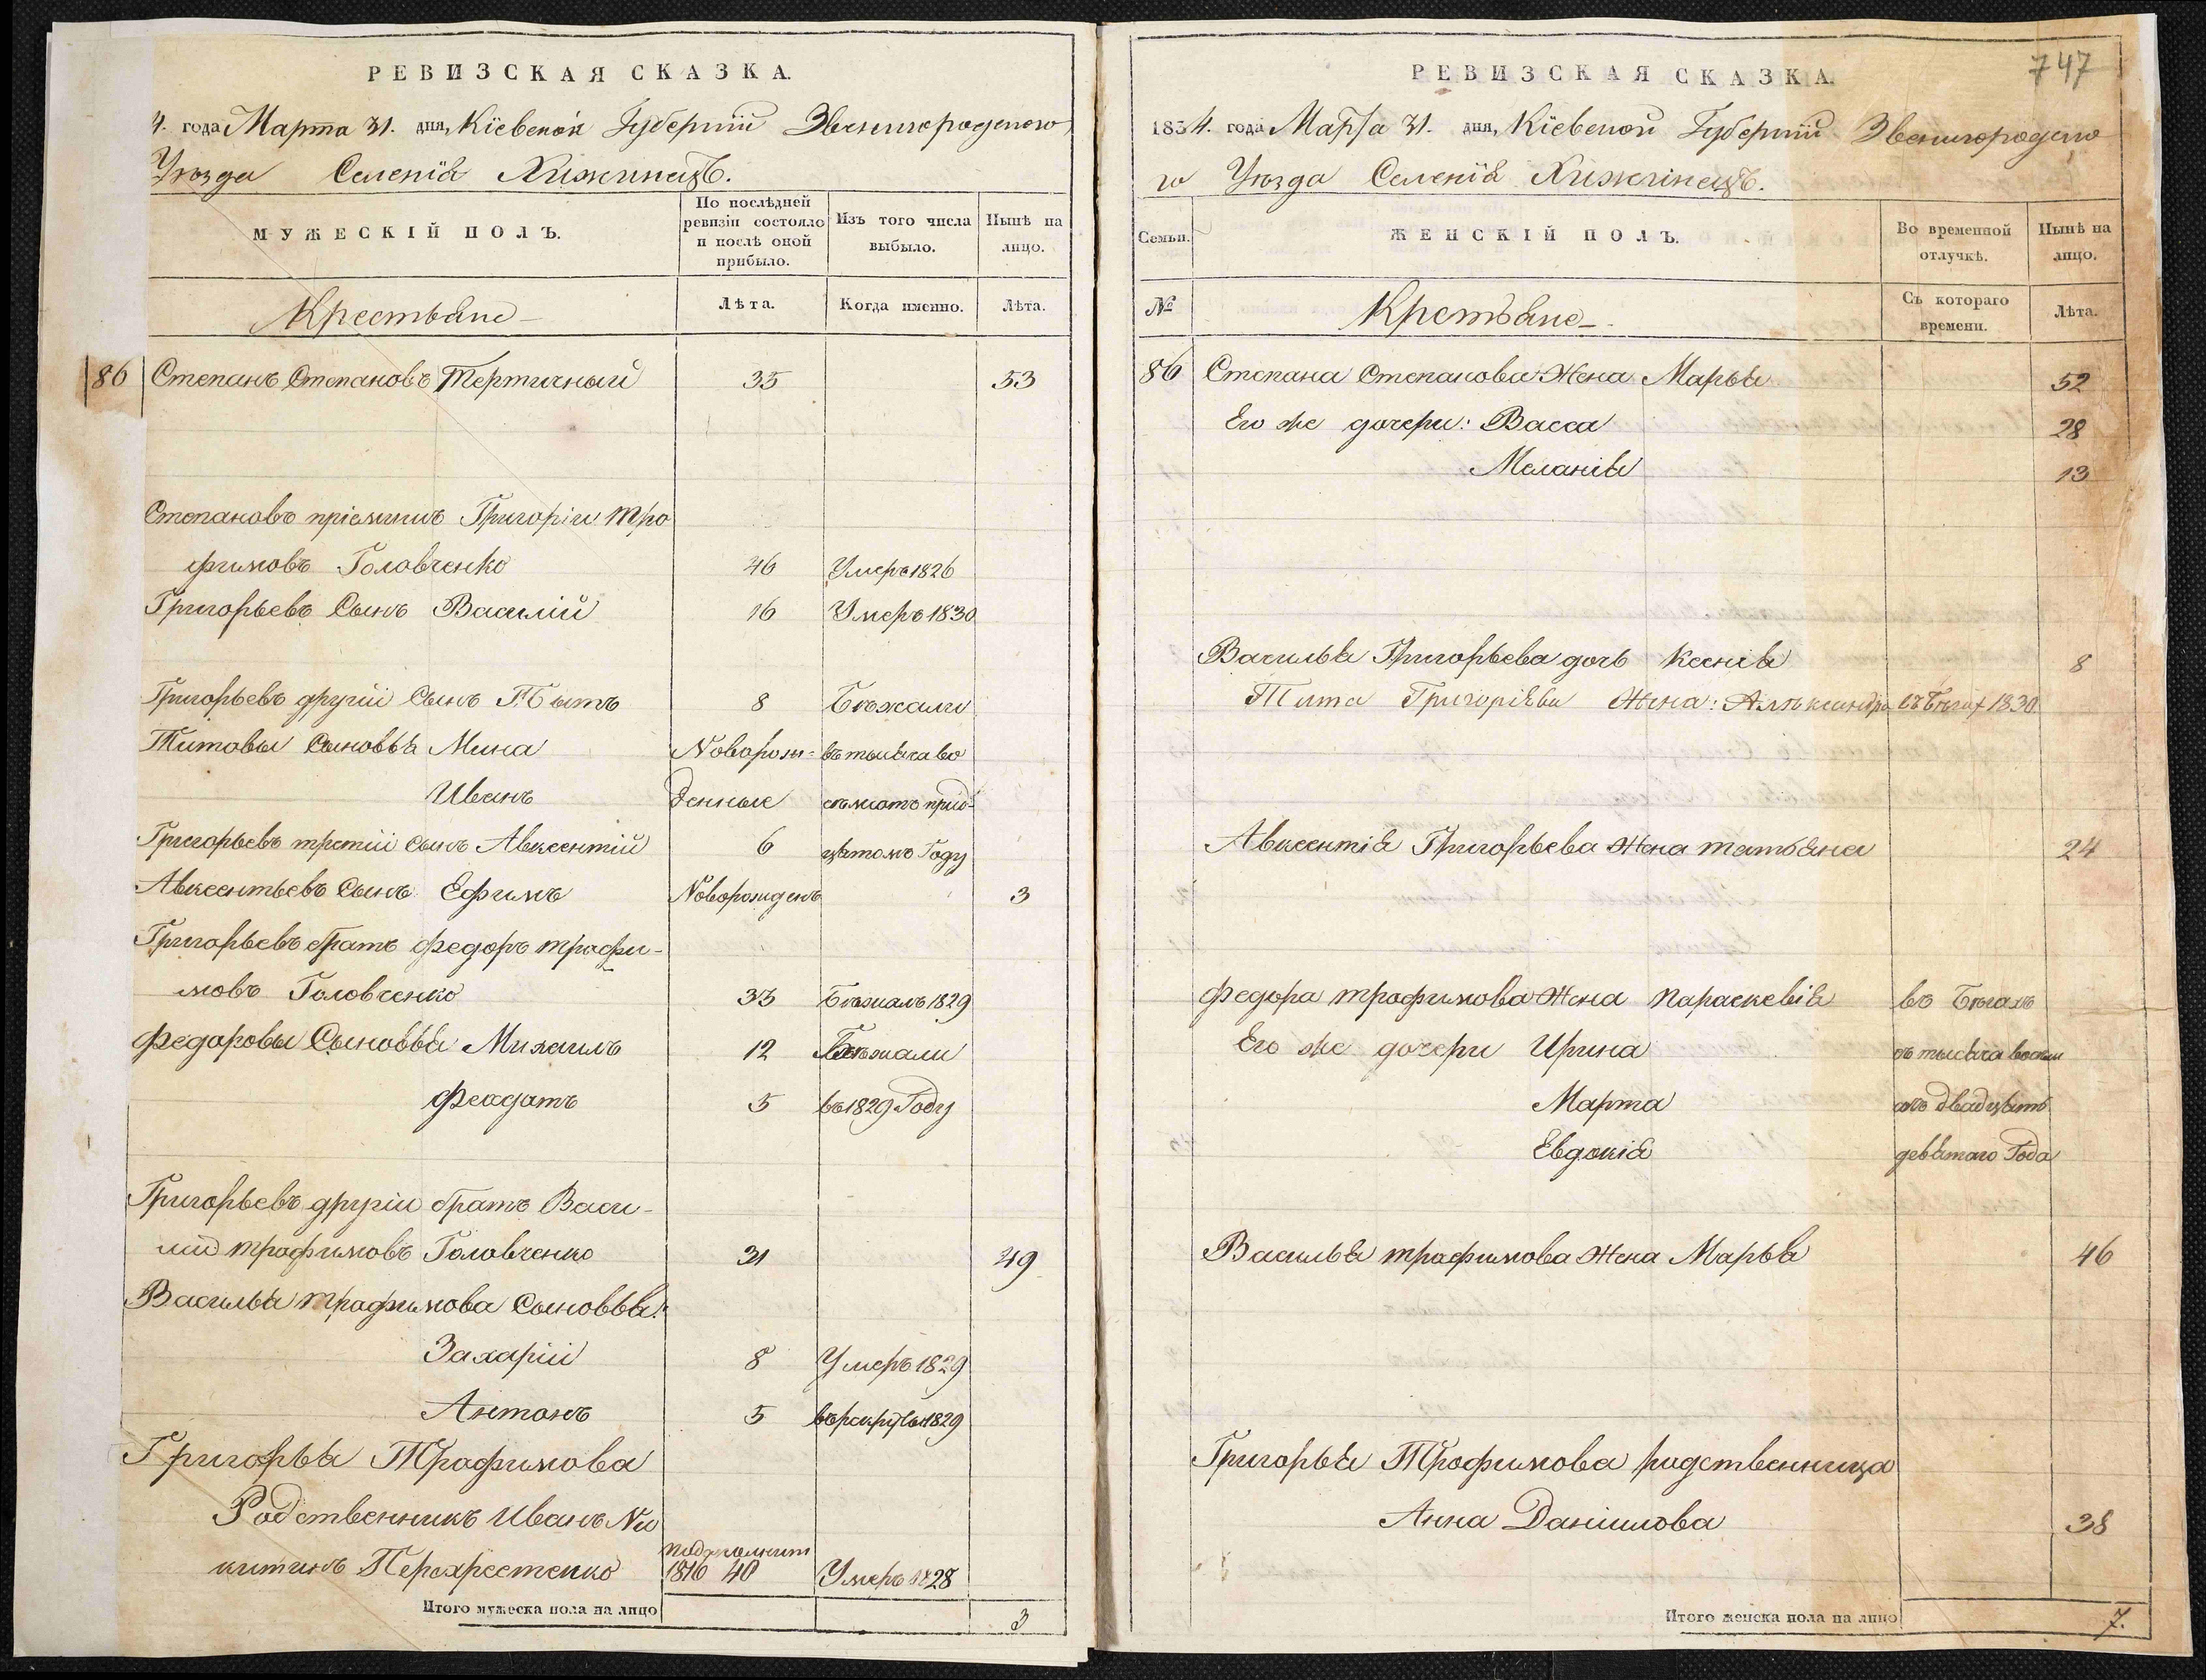 РЕВИЗСКАЯ СКАЗКА.
4. года Марта 31. дня, Кіевской Губерніи Звенигородского
Уѣзда Селенія Хижинецъ.
МУЖЕСКІЙ ПОЛЪ.
По послѣдней ревизіи состояло и послѣ оной прибыло.
Изъ того числа выбыло.
Нынѣ на лицо.
Крестьяне
Лѣта.
Когда именно.
Лѣта.
86 Степанъ Степановъ Тертичный 35 53
Степановъ пріемышъ Григоріи Тро
фимовъ Головченко 46 Умеръ 1826
Григорьевъ Сынъ Василій 16 Умеръ 1830
Григорьевъ другіи Сынъ Титъ 8 Бѣжали
Титовы Сыновья Мина Новорож= въ тысяча во
Иванъ денные семъсотъ
Григорьевъ третіи сынъ Авксентій 6 цатомъ Году
Авксентьевъ Сынъ Ефимъ Новорожденъ 3
Григорьевъ братъ Федоръ Трофи-
мовъ Головченко 33 Бѣжалъ 1829
Федоровы Сыновья Михаилъ 12 Бѣжали
Феодатъ 5 въ 1829 Году
Григорьевъ другіи братъ Васи-
лій Трофимовъ Головченко 31 49
Василья Трофимова Сыновья:
Захарій 8 Умеръ 1829
Антонъ 5 въ рекруты 1829
Григорья Трофимова
Родственникъ Иванъ Ни
китинъ Перехрестенко 1816 40 Умеръ 1828
Итого мужеска пола на лицо 3
747
РЕВИЗСКАЯ СКАЗКА.
1834. года Марта 31. дня, Кіевской Губерніи Звенигородско
го Уѣзда Селенія Хижинецъ.
Семьи.
ЖЕНСКІЙ ПОЛЪ.
Во временной отлучкѣ.
Нынѣ на лицо.
№
Крестьяне
Съ котораго времени.
Лѣта.
86 Степана Степанова Жена Марья 52
Его же дочери: Васса 28
Меланія 13
Василья Григорьева дочь Ксенія 8
Тита Григоріява Жена: Александра въ бѣгах 1830
Авксентія Григорьева Жена татьяна 24
Федора Трофимова Жена Параскевія въ бѣгахъ
Его же дочери Ирина съ тысяча восем
Марта отъ двадцать
Евдокія девятаго Года
Василья трофимова Жена Марья 46
Григорья Трофимова родственница
Анна Даниилова 38
Итого женска пола на лицо 7.